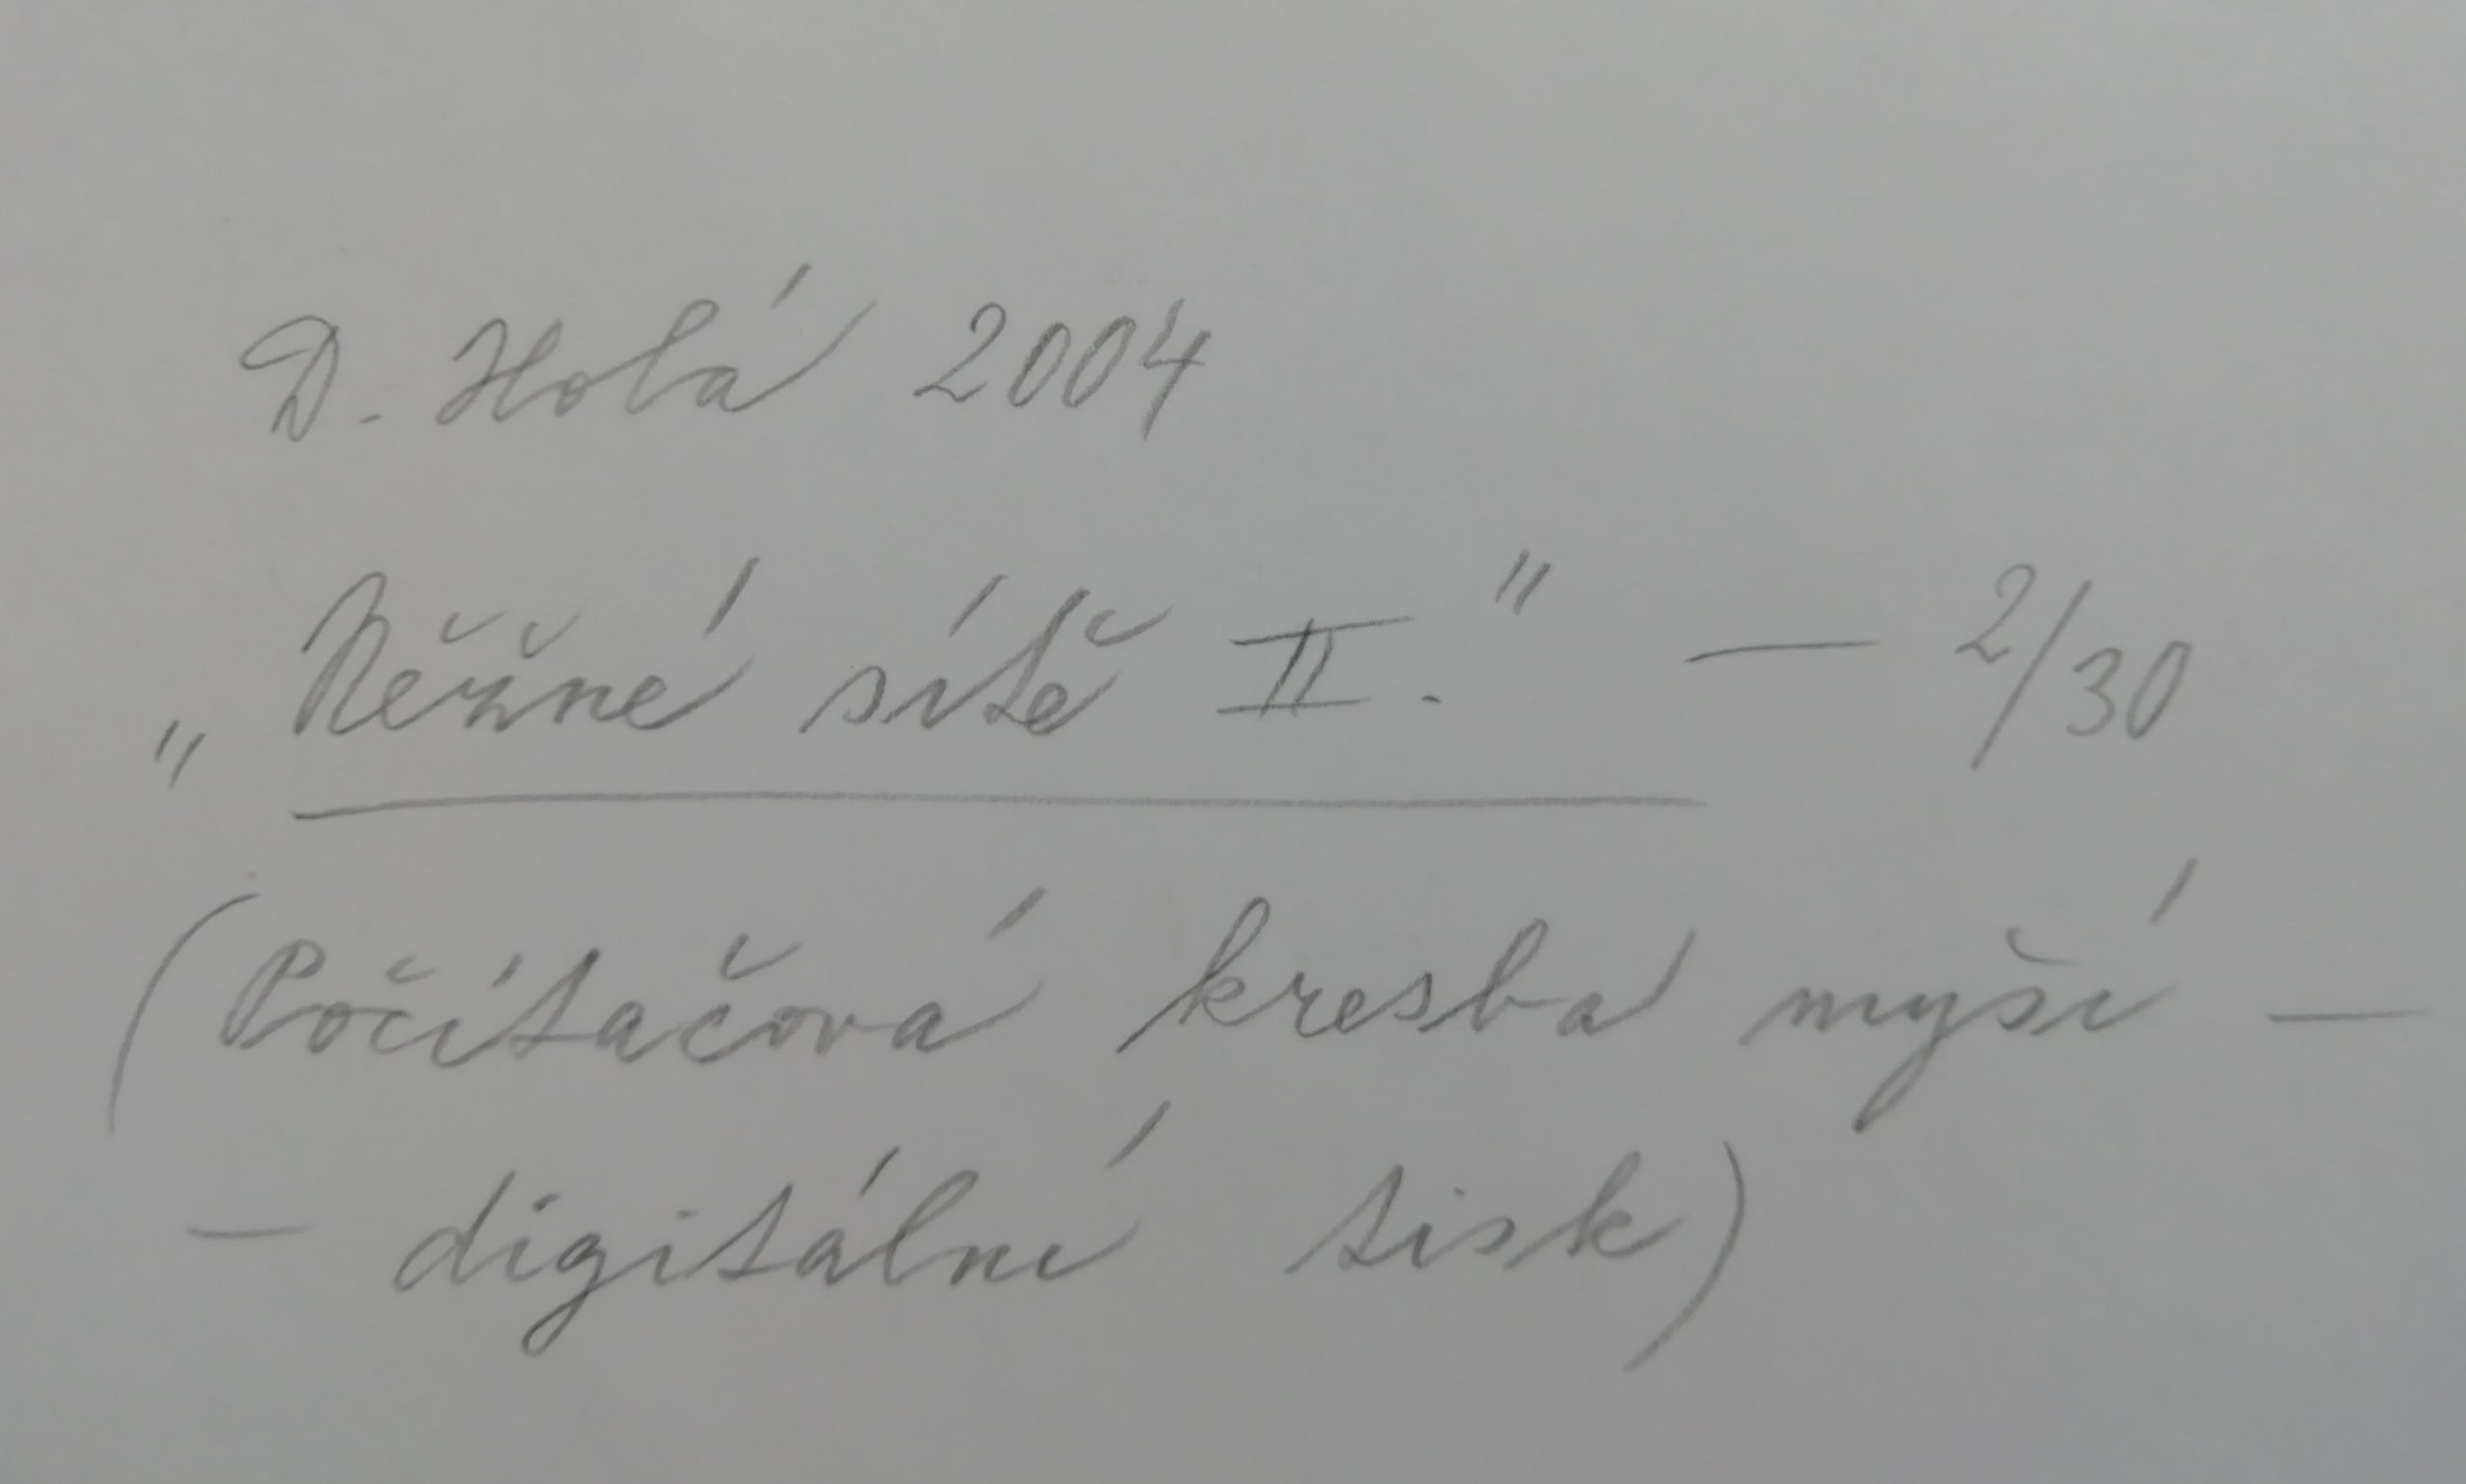 D. Holá 2004
„Něžné sítě II." — 2/30
(Počítačová kresba myší —
— digitální tisk)